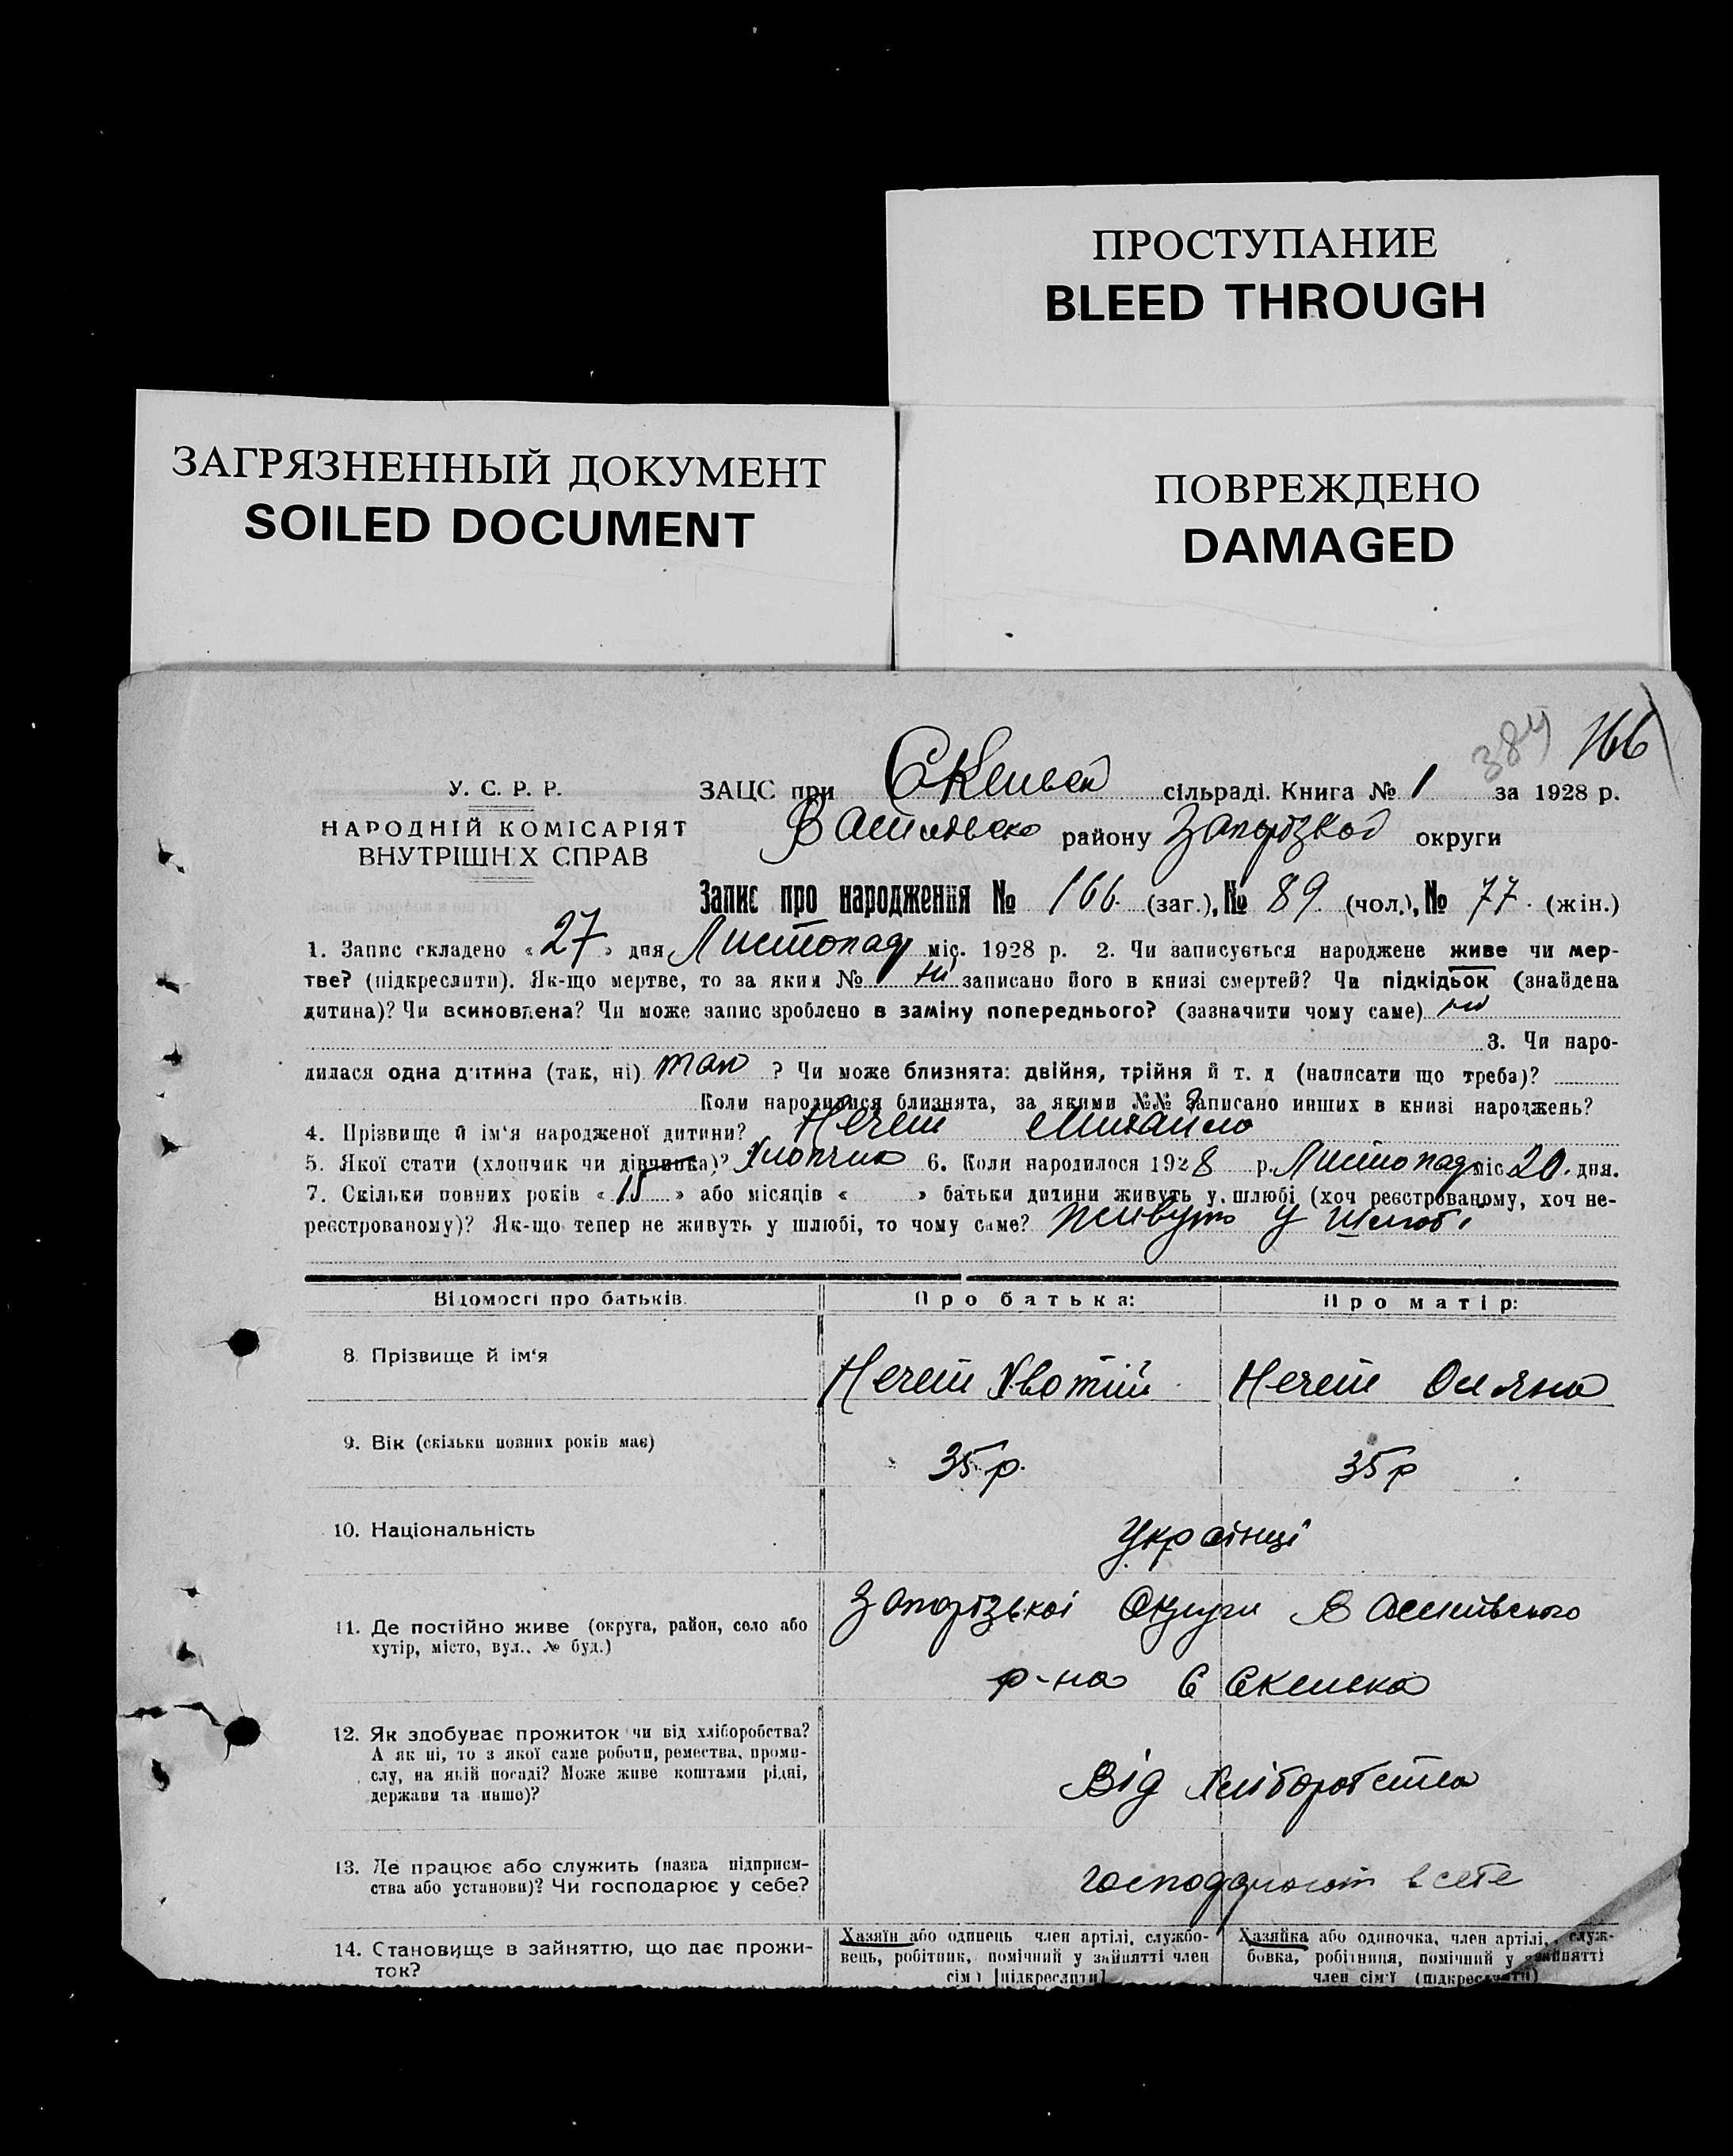 ПРОСТУПАНИЕ
BLEED THROUGH
ЗАГРЯЗНЕННЫЙ ДОКУМЕНТ
SOILED DOCUMENT
ПОВРЕЖДЕНО
DAMAGED
384 166
У. С. Р. Р.
НАРОДНІЙ КОМІСАРІЯТ
ВНУТРІШНІХ СПРАВ
ЗАЦС при Скельск сільраді. Книга № 1 за 1928 р.
району Запорізької округи
Запис про народження № 166 (заг.), № 89 (чол.), № 77 (жін.)
1. Запис складено «27» дня Листопад міс. 1928 р. 2. Чи записується народжене живе чи мер-
тве? (підкреслити). Як-що мертве, то за яким № ні записано його в книзі смертей? Чи підкідьок (знайдена
дитина)? Чи всиновлена? Чи може запис зроблено в заміну попереднього? (зазначити чому саме) ні
3. Чи наро-
дилася одна дитина (так, ні) так ? Чи може близнята: двійня, трійня й т. д (написати що треба)?
Коли народилися близнята, за якими №№ записано инших в книзі народжень?
4. Прізвище й ім'я народженої дитини? Нечет Михайло
5. Якої стати (хлопчик чи дівчинка)? Хлопчик 6. Коли народилося 1928 р. Листопад міс 20. дня.
7. Скільки повних років «15» або місяців « » батьки дитини живуть у шлюбі (хоч реєстрованому, хоч не-
реєстрованому)? Як-що тепер не живуть у шлюбі, то чому саме? живуть у шлюбі
Відомості про батьків. Про батька: Про матір:
8. Прізвище й ім'я Нечет Хвотій Нечет Оляна
9. Вік (скільки повних років має) 35 р. 35 р
10. Національність Українці
11. Де постійно живе (округа, район, село або
хутір, місто, вул., № буд.)
Запорізької Округи Василівського
р-на С Скелька
12. Як здобуває прожиток чи від хліборобства?
А як ні, то з якої саме роботи, ремества, проми-
слу, на якій посаді? Може живе коштами рідні,
держави та инше)?
Від Хліборобства
13. Де працює або служить (назва підприєм-
ства або установи)? Чи господарює у себе?
господарюют в себе
14. Становище в зайняттю, що дає прожи-
ток?
Хазяїн або одинець член артілі, службо-
вець, робітник, помічний у зайнятті член
сім'ї [підкреслити]
Хазяйка або одиночка, член артілі, служ-
бовка, робітниця, помічний у зайнятті
член сім'ї (підкреслити)